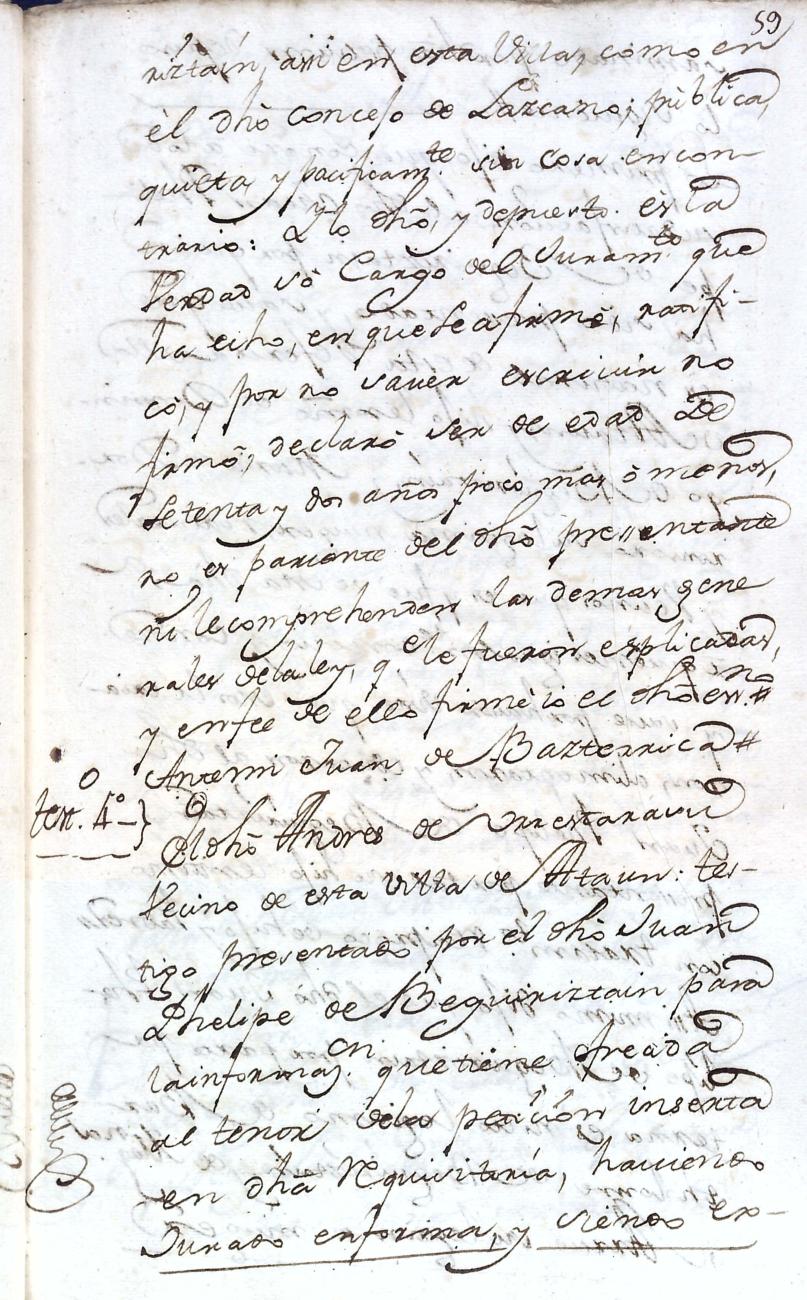 59
riztain, assi en esta Villa, como en
el dho Concejo de Lazcano; publica,
quieta, y pacificamte. sin cosa en con-
trario: Ylo dho, y depuesto. es la
Verdad so Cargo del Juramto. que
ha echo, en que se afirmò, ratifi-
cò, y por no saver escrivir no
firmò; declarò, ser de edad De
setenta y dos años poco mas ò menos,
no es pariente del dho presentante
ni le comprehenden las demas gene
rales dela ley, qe. le fueron explicadas,
y en fee de ello firmè io el dho essno.#
Antemi Juan de Bazterrica #
test.o 4o.} El dho Andres de Urrestarasu
Vecino de esta Villa de Ataun: tes-
tigo presentado por el dho Juan
Phelipe de Beguiriztain para
la informaz.on que tiene ofrecida
al tenor dela petición inserta
en dha requisitoria, haviendo
Jurado en forma, y siendo ex-